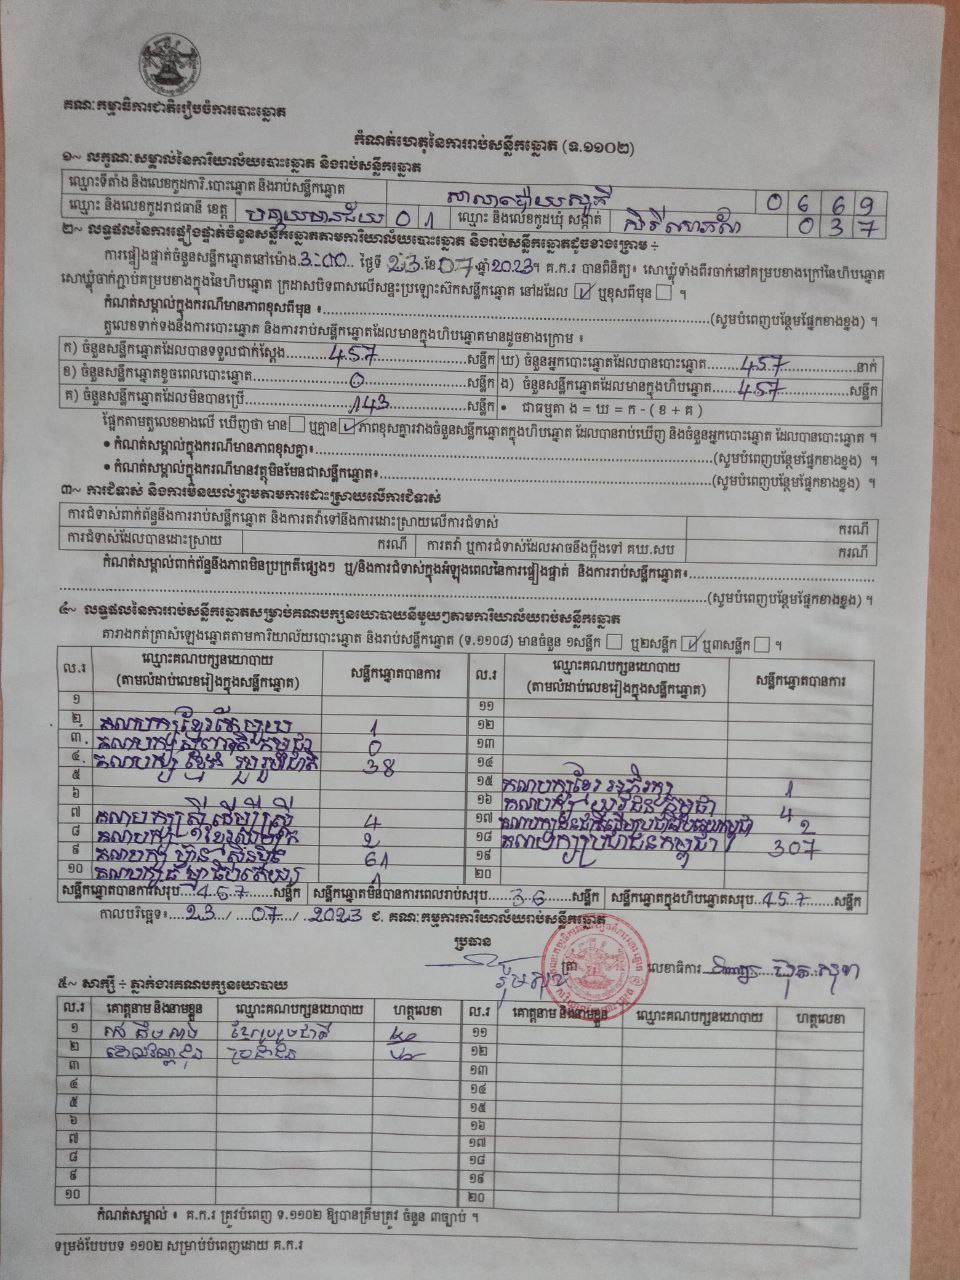 គណៈកម្មាធិការជាតិរៀបចំការបោះឆ្នោត
កំណត់ហេតុនៃការរាប់សន្លឹកឆ្នោត (ទ.១១០២)
១~ លក្ខណៈសម្គាល់នៃការិយាល័យបោះឆ្នោត និងរាប់សន្លឹកឆ្នោត
ឈ្មោះទីតាំង និងលេខកូដការិ.បោះឆ្នោត និងរាប់សន្លឹកឆ្នោត 0 6 6 9
ឈ្មោះ និងលេខកូដរាជធានី ខេត្ត បន្ទាយមានជ័យ 0 1 ឈ្មោះ និងលេខកូដឃុំ សង្កាត់ 0 3 7
២~ លទ្ធផលនៃការផ្ទៀងផ្ទាត់ចំនួនសន្លឹកឆ្នោតតាមការិយាល័យបោះឆ្នោត និងរាប់សន្លឹកឆ្នោតដូចខាងក្រោម ÷
ការផ្ទៀងផ្ទាត់ចំនួនសន្លឹកឆ្នោតនៅម៉ោង 3:00 ថ្ងៃទី 23 ខែ 07 ឆ្នាំ 2023។ គ.ក.រ បានពិនិត្យ៖ សោឃ្លុំទាំងពីរចាក់នៅគម្របខាងក្រៅនៃហិបឆ្នោត
សោឃ្លុំចាក់ភ្ជាប់គម្របខាងក្នុងនៃហិបឆ្នោត ក្រដាសបិទពាសលើសន្ទះប្រឡោះស៊កសន្លឹកឆ្នោត នៅដដែល ☑ ឬខុសពីមុន ☐ ។
កំណត់សម្គាល់ក្នុងករណីមានភាពខុសពីមុន ៖ (សូមបំពេញបន្ថែមផ្នែកខាងខ្នង) ។
តួលេខទាក់ទងនឹងការបោះឆ្នោត និងការរាប់សន្លឹកឆ្នោតដែលមានក្នុងហិបឆ្នោតមានដូចខាងក្រោម ៖
ក) ចំនួនសន្លឹកឆ្នោតដែលបានទទួលជាក់ស្តែង សន្លឹក ឃ) ចំនួនអ្នកបោះឆ្នោតដែលបានបោះឆ្នោត 457 នាក់
ខ) ចំនួនសន្លឹកឆ្នោតខូចពេលបោះឆ្នោត 0 សន្លឹក ង) ចំនួនសន្លឹកឆ្នោតដែលមានក្នុងហិបឆ្នោត 457 សន្លឹក
គ) ចំនួនសន្លឹកឆ្នោតដែលមិនបានប្រើ 143 សន្លឹក • ជាធម្មតា ង = ឃ = ក - ( ខ + គ )
ផ្អែកតាមតួលេខខាងលើ ឃើញថា មាន ☐ ឬគ្មាន ☑ ភាពខុសគ្នារវាងចំនួនសន្លឹកឆ្នោតក្នុងហិបឆ្នោត ដែលបានរាប់ឃើញ និងចំនួនអ្នកបោះឆ្នោត ដែលបានបោះឆ្នោត ។
• កំណត់សម្គាល់ក្នុងករណីមានភាពខុសគ្នា៖ (សូមបំពេញបន្ថែមផ្នែកខាងខ្នង) ។
• កំណត់សម្គាល់ក្នុងករណីមានវត្ថុមិនមែនជាសន្លឹកឆ្នោត៖ (សូមបំពេញបន្ថែមផ្នែកខាងខ្នង) ។
៣~ ការជំទាស់ និងការមិនយល់ព្រមតាមការដោះស្រាយលើការជំទាស់
ការជំទាស់ពាក់ព័ន្ធនឹងការរាប់សន្លឹកឆ្នោត និងការតវ៉ាទៅនឹងការដោះស្រាយលើការជំទាស់ ករណី
ការជំទាស់ដែលបានដោះស្រាយ ករណី ការតវ៉ា ឬការជំទាស់ដែលអាចនឹងប្តឹងទៅ គឃ.សប ករណី
កំណត់សម្គាល់ពាក់ព័ន្ធនឹងភាពមិនប្រក្រតីផ្សេងៗ ឬ/និងការជំទាស់ក្នុងអំឡុងពេលនៃការផ្ទៀងផ្ទាត់ និងការរាប់សន្លឹកឆ្នោត៖
(សូមបំពេញបន្ថែមផ្នែកខាងខ្នង) ។
៤~ លទ្ធផលនៃការរាប់សន្លឹកឆ្នោតសម្រាប់គណបក្សនយោបាយនីមួយៗតាមការិយាល័យរាប់សន្លឹកឆ្នោត
តារាងកត់ត្រាសំឡេងឆ្នោតតាមការិយាល័យបោះឆ្នោត និងរាប់សន្លឹកឆ្នោត (ទ.១១០៨) មានចំនួន ១សន្លឹក ☐ ឬ២សន្លឹក ☑ ឬ៣សន្លឹក ☐ ។
ល.រ ឈ្មោះគណបក្សនយោបាយ (តាមលំដាប់លេខរៀងក្នុងសន្លឹកឆ្នោត) សន្លឹកឆ្នោតបានការ ល.រ ឈ្មោះគណបក្សនយោបាយ (តាមលំដាប់លេខរៀងក្នុងសន្លឹកឆ្នោត) សន្លឹកឆ្នោតបានការ
១ ១១
២ គណបក្សខ្មែរតែមួយ 1 ១២
៣ គណបក្ស កម្ពុជា 0 ១៣
៤ គណបក្ស ខ្មែរ រួបរួមជាតិ 38 ១៤
៥ ១៥ គណបក្សខ្មែរ អភិរក្ស 1
៦ ១៦ គណបក្ស យុវជនកម្ពុជា 4
៧ គណបក្សស្ត្រីដើម្បីស្ត្រី 4 ១៧ 2
៨ 2 ១៨ គណបក្សប្រជាជនកម្ពុជា 307
៩ គណបក្ស ហ៊្វុនស៊ិនប៉ិច 61 ១៩
១០ គណបក្សធម្មាធិបតេយ្យ 1 ២០
សន្លឹកឆ្នោតបានការសរុប សន្លឹក សន្លឹកឆ្នោតមិនបានការពេលរាប់សរុប 36 សន្លឹក សន្លឹកឆ្នោតក្នុងហិបឆ្នោតសរុប 457 សន្លឹក
កាលបរិច្ឆេទ៖ 23 / 07 / 2023 ជ. គណៈកម្មការការិយាល័យរាប់សន្លឹកឆ្នោត
ប្រធាន
ត្រា លេខាធិការ
៥~ សាក្សី ÷ ភ្នាក់ងារគណបក្សនយោបាយ
ល.រ គោត្តនាម និងនាមខ្លួន ឈ្មោះគណបក្សនយោបាយ ហត្ថលេខា ល.រ គោត្តនាម និងនាមខ្លួន ឈ្មោះគណបក្សនយោបាយ ហត្ថលេខា
១ ខ្មែររួបរួមជាតិ ១១
២ ប្រជាជន ១២
៣ ១៣
៤ ១៤
៥ ១៥
៦ ១៦
៧ ១៧
៨ ១៨
៩ ១៩
១០ ២០
កំណត់សម្គាល់ ៖ គ.ក.រ ត្រូវបំពេញ ទ.១១០២ ឱ្យបានត្រឹមត្រូវ ចំនួន ៣ច្បាប់ ។
ទម្រង់បែបបទ ១១០២ សម្រាប់បំពេញដោយ គ.ក.រ